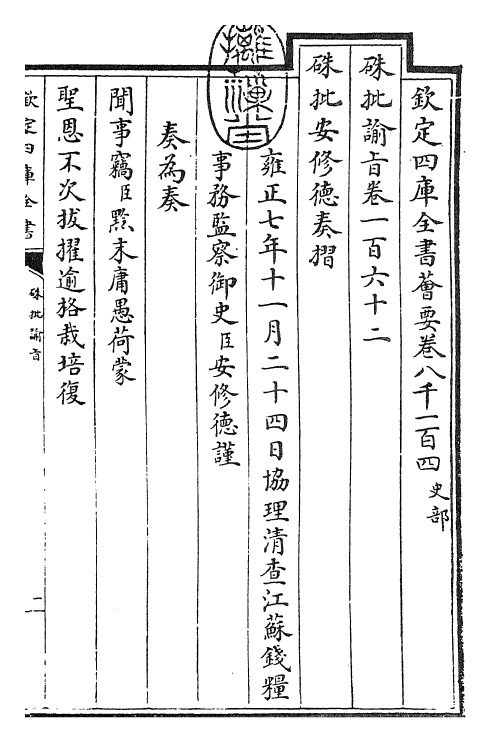 欽定四庫全書薈要卷八千一百四 史部
硃批諭旨卷一百六十二
硃批安修德奏摺
雍正七年十一月二十四日協理清查江蘇錢糧
事務監察御史臣安修德謹
奏為奏
聞事竊臣黔末庸愚荷蒙
聖恩不次拔擢逾格栽培復
欽定四庫全書
硃批諭旨